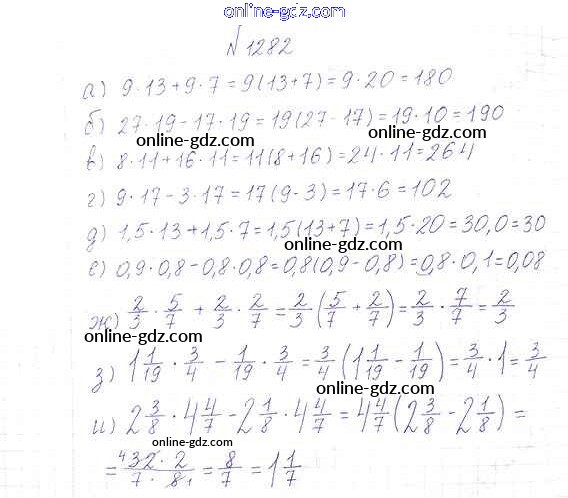 online-gdz.com
№ 1282
а) 9·13+9·7=9(13+7)=9·20=180
б) 27·19-17·19=19(27-17)=19·10=190
online-gdz.com
в) 8·11+16·11=11(8+16)=24·11=264
online-gdz.com
г) 9·17-3·17=17(9-3)=17·6=102
д) 1,5·13+1,5·7=1,5(13+7)=1,5·20=30,0=30
online-gdz.com
е) 0,9·0,8-0,8·0,8=0,8(0,9-0,8)=0,8·0,1=0,08
ж) 2/3·5/7+2/3·2/7=2/3(5/7+2/7)=2/3·7/7=2/3
online-gdz.com
з) 1 1/19·3/4-1/19·3/4=3/4(1 1/19-1/19)=3/4·1=3/4
online-gdz.com
и) 2 3/8·4 4/7-2 1/8·4 4/7=4 4/7(2 3/8-2 1/8)=
online-gdz.com
=4 32·2/7·8 1=8/7=1 1/7